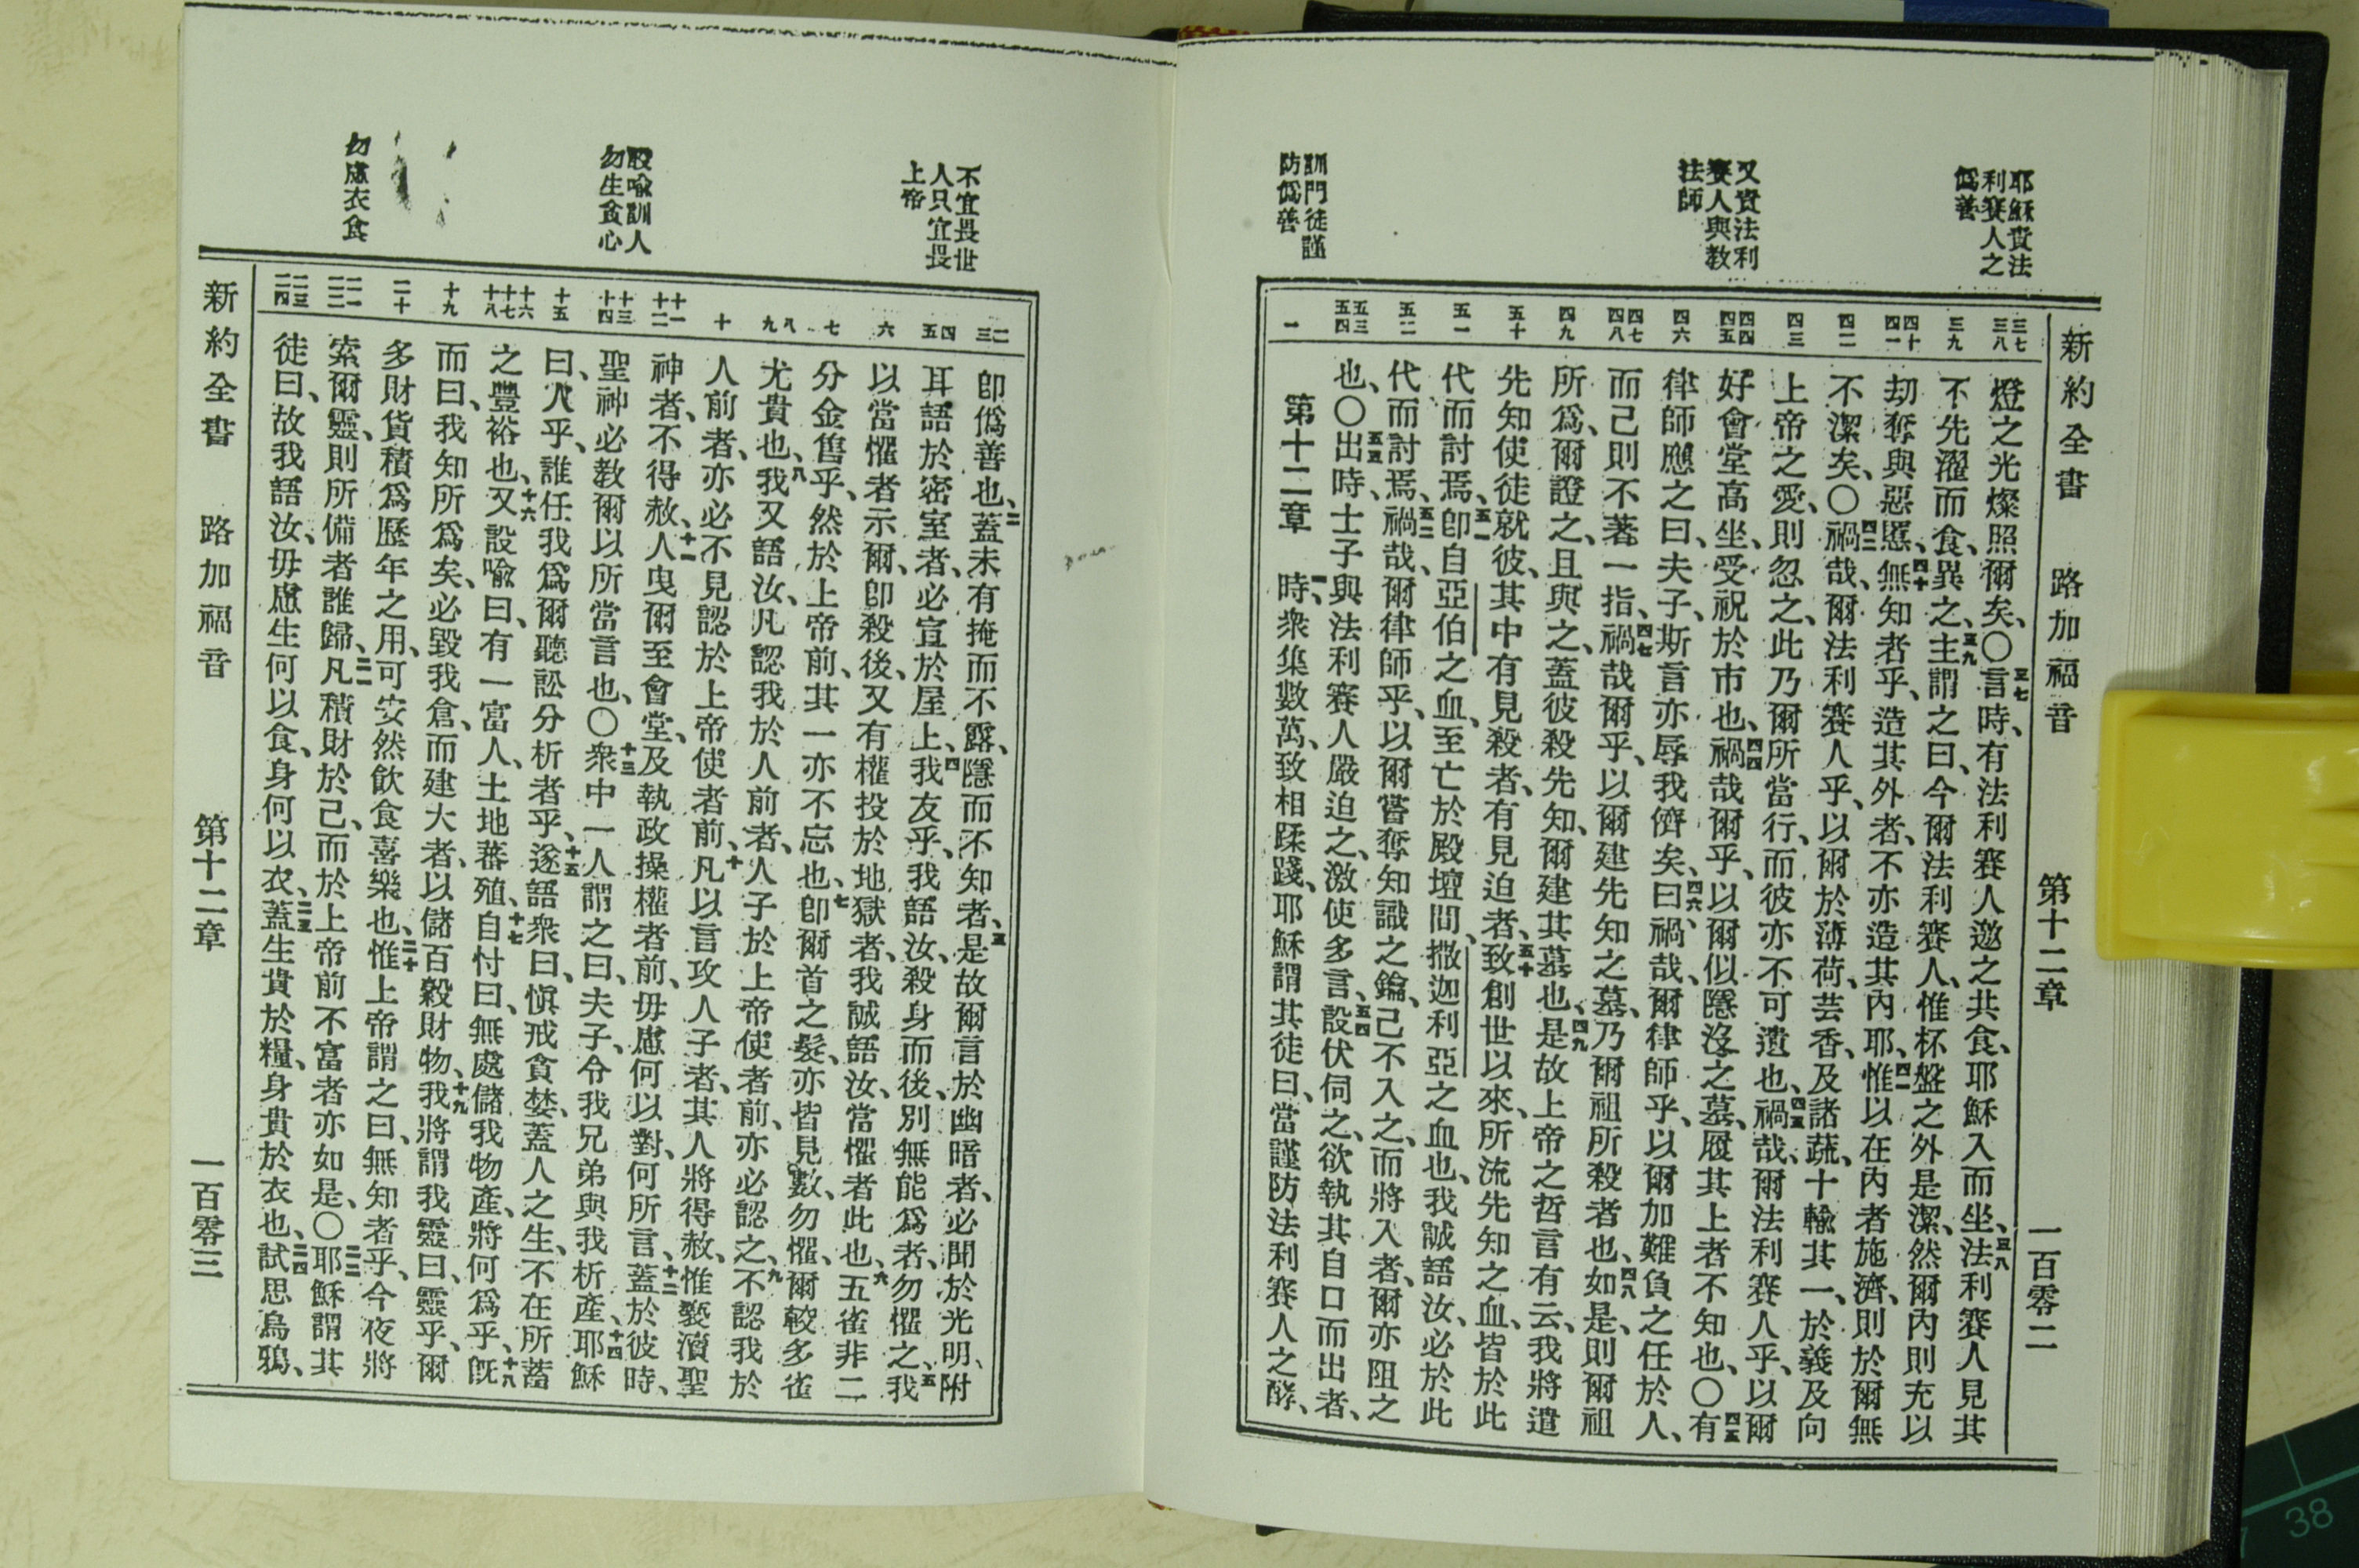 新約全書 路加福音 第十二章 一百零二
耶穌責法
利賽人之
僞善
又責法利
賽人與教
法師
訓門徒謹
防僞善
三七
三八
三九
四十
四一
四二
四三
四四
四五
四六
四七
四八
四九
五十
五一
五二
五三
五四
一
燈之光燦照爾矣、〇三七言時、有法利賽人邀之共食、耶穌入而坐、三八法利賽人見其
不先濯而食、異之、三九主謂之曰、今爾法利賽人、惟杯盤之外是潔、然爾內則充以
刧奪與惡慝、四十無知者乎、造其外者、不亦造其內耶、四一惟以在內者施濟、則於爾無
不潔矣、〇四二禍哉、爾法利賽人乎、以爾於薄荷、芸香、及諸蔬、十輸其一、於義及向
上帝之愛、則忽之、此乃爾所當行、而彼亦不可遺也、四三禍哉、爾法利賽人乎、以爾
好會堂高坐、受祝於市也、四四禍哉爾乎、以爾似隱沒之墓、履其上者不知也、〇四五有
律師應之曰、夫子、斯言亦辱我儕矣、四六曰、禍哉、爾律師乎、以爾加難負之任於人、
而己則不著一指、四七禍哉爾乎、以爾建先知之墓、乃爾祖所殺者也、四八如是、則爾祖
所爲、爾證之、且與之、蓋彼殺先知、爾建其墓也、四九是故上帝之哲言有云、我將遣
先知使徒就彼、其中有見殺者、有見迫者、五十致創世以來、所流先知之血、皆於此
代而討焉、五一卽自亞伯之血、至亡於殿壇間、撒迦利亞之血也、我誠語汝、必於此
代而討焉、五二禍哉、爾律師乎、以爾嘗奪知識之鑰、己不入之、而將入者、爾亦阻之
也、〇五三出時、士子與法利賽人嚴迫之、激使多言、五四設伏伺之、欲執其自口而出者、
第十二章 一時、衆集數萬、致相蹂踐、耶穌謂其徒曰、當謹防法利賽人之酵、
不宜畏世
人只宜畏
上帝
設喩訓人
勿生貪心
勿慮衣食
二
三
四
五
六
七
八
九
十
十一
十二
十三
十四
十五
十六
十七
十八
十九
二十
二一
二二
二三
二四
卽僞善也、二蓋未有掩而不露、隱而不知者、三是故爾言於幽暗者、必聞於光明、附
耳語於密室者、必宣於屋上、四我友乎、我語汝、殺身而後、別無能爲者、勿懼之、五我
以當懼者示爾、卽殺後、又有權投於地獄者、我誠語汝、當懼者此也、六五雀非二
分金售乎、然於上帝前、其一亦不忘也、七卽爾首之髮、亦皆見數、勿懼、爾較多雀
尤貴也、八我又語汝、凡認我於人前者、人子於上帝使者前、亦必認之、九不認我於
人前者、亦必不見認於上帝使者前、十凡以言攻人子者、其人將得赦、惟褻瀆聖
神者、不得赦、十一人曳爾至會堂、及執政操權者前、毋慮何以對、何所言、十二蓋於彼時、
聖神必敎爾以所當言也、〇十三衆中一人謂之曰、夫子、令我兄弟與我析產、十四耶穌
曰、人乎、誰任我爲爾聽訟分析者乎、十五遂語衆曰、愼戒貪婪、蓋人之生、不在所蓄
之豐裕也、十六又設喩曰、有一富人、土地蕃殖、十七自忖曰、無處儲我物產、將何爲乎、十八旣
而曰、我知所爲矣、必毀我倉、而建大者、以儲百穀財物、十九我將謂我靈曰、靈乎、爾
多財貨積爲歷年之用、可安然飲食喜樂也、二十惟上帝謂之曰、無知者乎、今夜將
索爾靈、則所備者誰歸、二一凡積財於己、而於上帝前不富者亦如是、〇二二耶穌謂其
徒曰、故我語汝、毋慮生何以食、身何以衣、二三蓋生貴於糧、身貴於衣也、二四試思烏鴉、
新約全書 路加福音 第十二章 一百零三
38